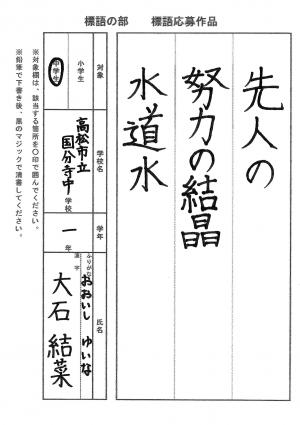 標語の部　標語応募作品
先人の
努力の結晶
水道水
対象
小学生
中学生
学校名
高松市立
国分寺中
学校
学年
一
年
氏名
ふりがな
おおいし ゆいな
漢字
大石 結菜
※対象欄は、該当する箇所を〇印で囲んでください。
※鉛筆で下書き後、黒のマジックで清書してください。